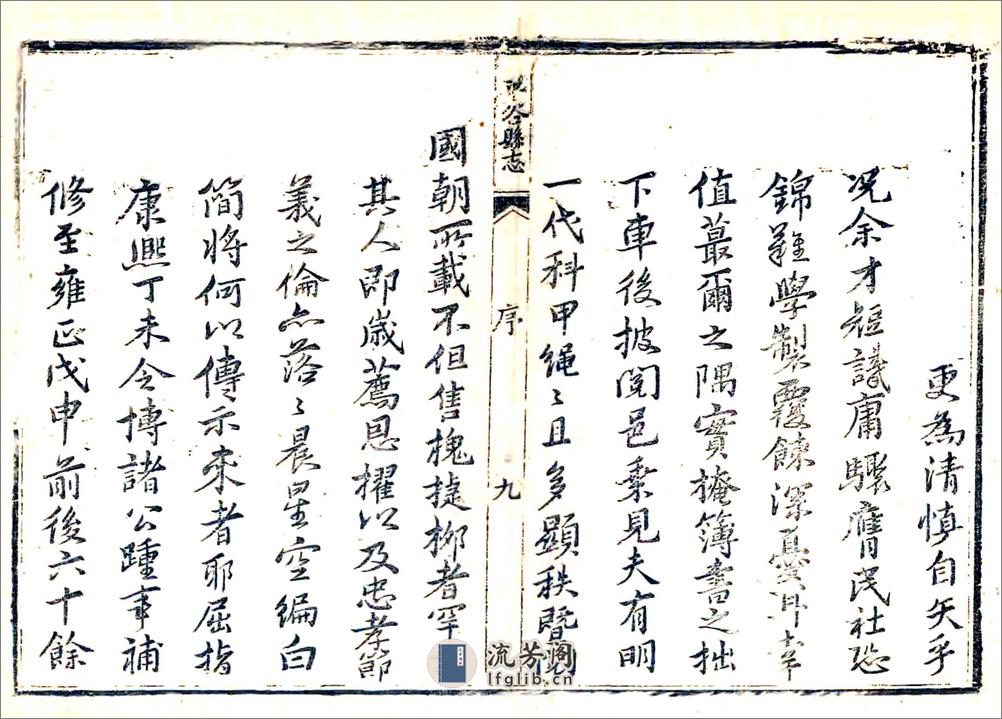 更為清慎自矢乎
況余才短識庸驟膺民社恐
錦難學製覆餗深虞耳幸
值蕞爾之隅實掩簿書之拙
下車後披閱邑乘見夫有明
一代科甲繩〻且多顯秩暨
谷縣志
序
九
國朝所載不但售槐捷柳者罕
其人即歲薦恩擢以及忠孝節
義之倫亦落〻晨星空編白
簡將何以傳示來者耶屈指
康熙丁未令博諸公踵事補
修至雍正戊申前後六十餘
流芳阁
lfglib.cn